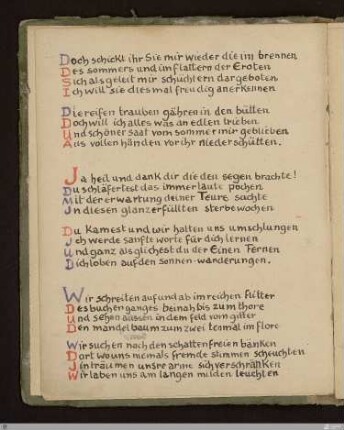 Doch schickt ihr Sie mir wieder die im brennen
Des sommers und im flattern der Eroten
Sich als geleit mir schüchtern dargeboten
Ich will sie diesmal freudig anerkennen
Die reifen trauben gähren in den bütten
Doch will ich alles was an edlen trieben
Und schöner saat vom sommer mir geblieben
Aus vollen händen vor ihr niederschütten.
Ja heil und dank dir die den segen brachte!
Du schläfertest das immer laute pochen
Mit der erwartung deiner Teure sachte
In diesen glanzerfüllten sterbewochen
Du kamest und wir halten uns umschlungen
Ich werde sanfte worte für dich lernen
Und ganz als glichest du der Einen Fernen
Dich loben auf den sonnen-wanderungen.
Wir schreiten auf und ab im reichen flitter
Des buchenganges beinah bis zum thore
Und sehen aussen in dem feld vom gitter
Den mandelbaum zum zweitenmal im flore
Wir suchen nach den schattenfreien bänken
Dort wo uns niemals fremde stimmen scheuchten
In träumen unsre arme sich verschränken
Wir laben uns am langen milden leuchten